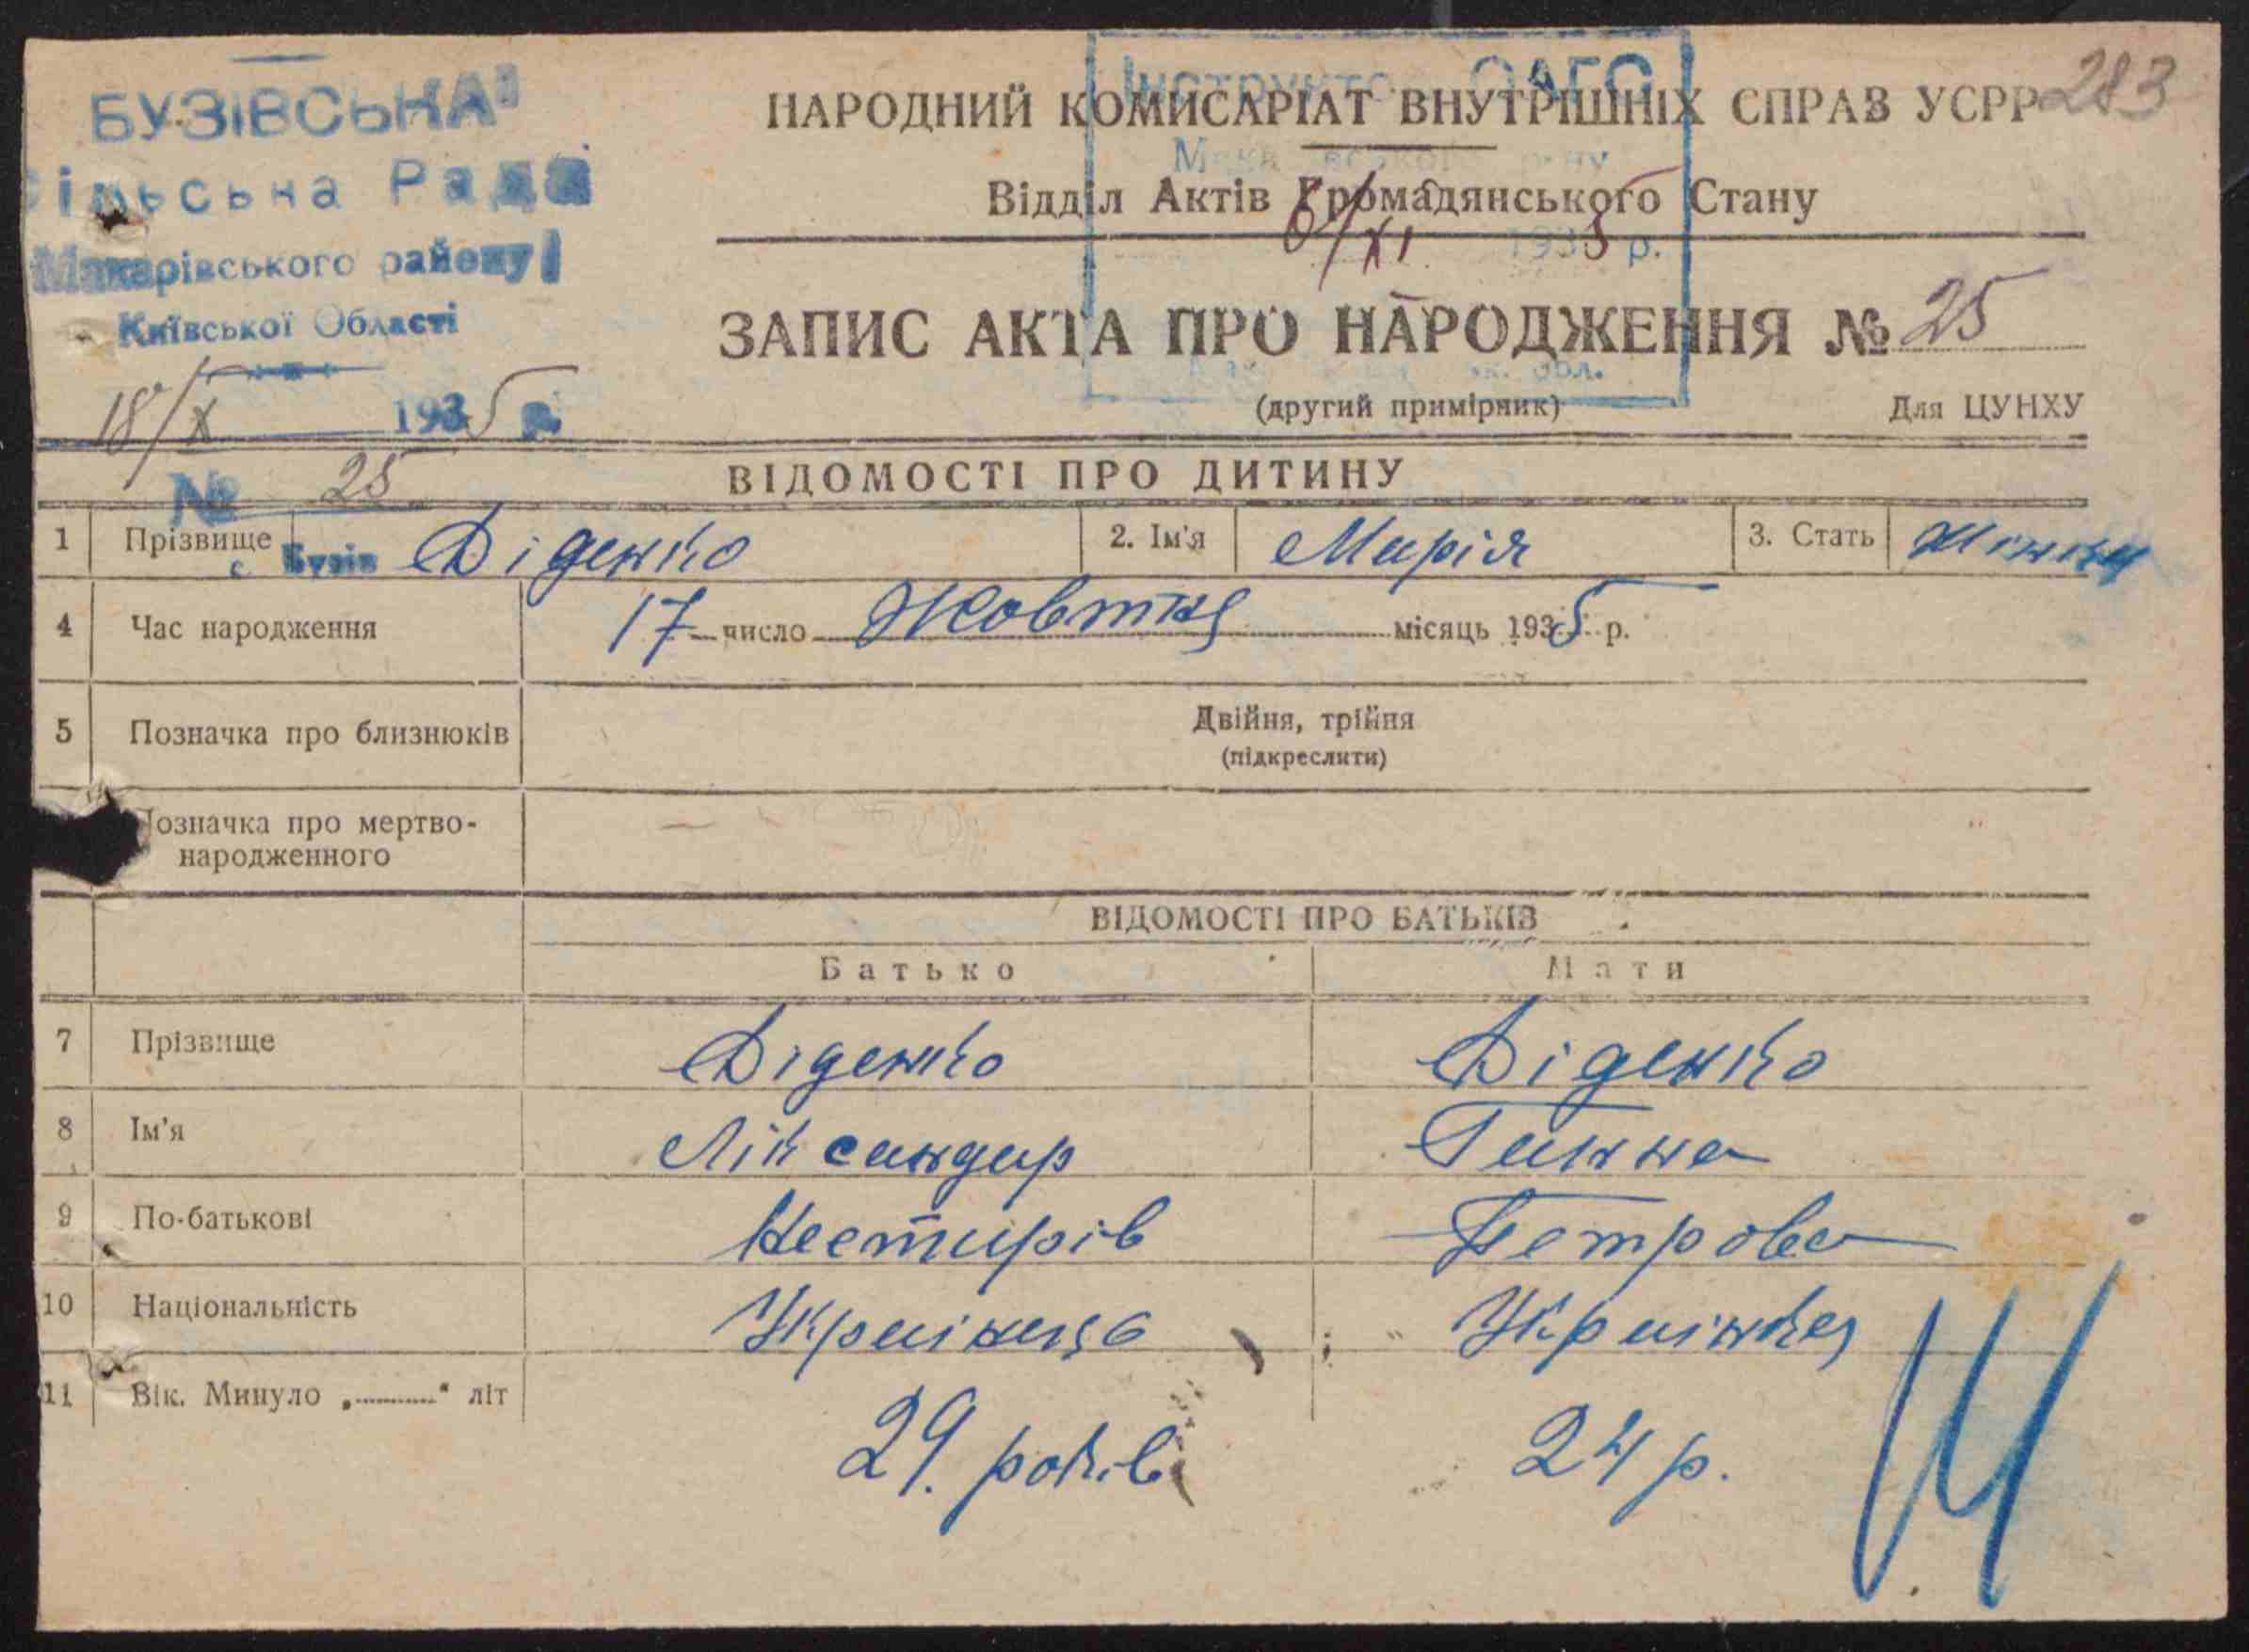 БУЗІВСЬКА
сільська Рада
Макарівського району
Київської Області
18/X 1935 р.
№ 25
с Бузів
283
НАРОДНИЙ КОМИСАРІАТ ВНУТРІШНІХ СПРАВ УСРР
Відділ Актів Громадянського Стану
6/XI 1935 р.
ЗАПИС АКТА ПРО НАРОДЖЕННЯ № 25
(другий примірник) Для ЦУНХУ
ВІДОМОСТІ ПРО ДИТИНУ
1 Прізвище Діденко 2. Ім'я Марія 3. Стать
4 Час народження 17 число Жовтня місяць 1935 р.
5 Позначка про близнюків Двійня, трійня
(підкреслити)
Позначка про мертво-
народженного
ВІДОМОСТІ ПРО БАТЬКІВ
Батько Мати
7 Прізвище Діденко Діденко
8 Ім'я Ліксандар Ганна
9 По-батькові Нестирів Петрова
10 Національність Українець Українка
11 Вік. Минуло „..........“ літ 29. років 24 р.